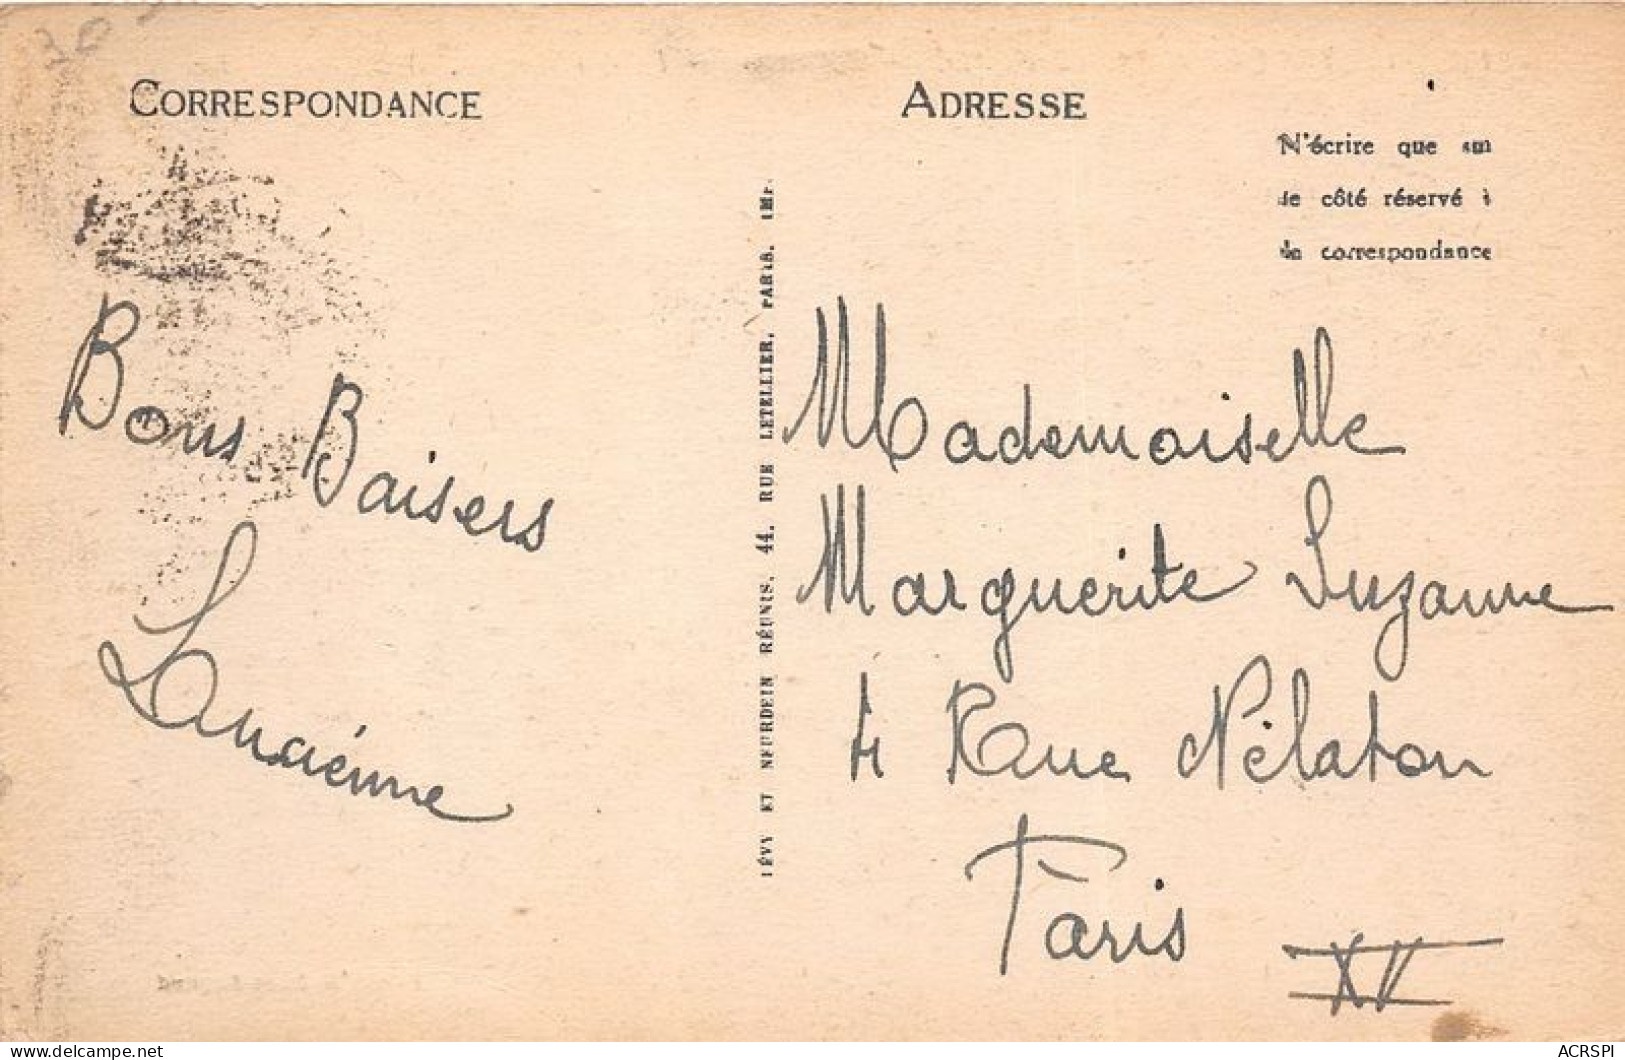 CORRESPONDANCE
Bons Baisers
Lucienne
LÉVY ET NEURDEIN RÉUNIS, 44, RUE LETELLIER, PARIS. IMP.
ADRESSE
N'écrire que sur
le côté réservé à
la correspondance
Mademoiselle
Marguerite Suzanne
4 Rue Nélaton
Paris
XV
delcampe.net
ACRSPI